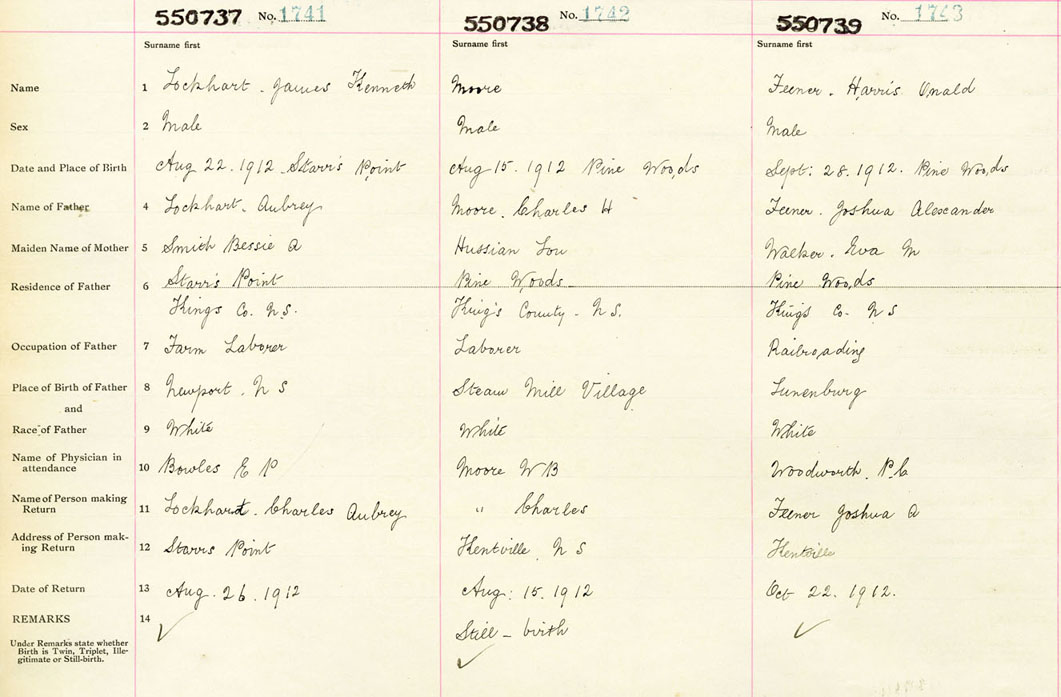 550737 No. 1741 550738 No. 1742 550739 No. 1743
Surname first Surname first Surname first
Name 1 Lockhart. James Kenneth Moore Feener. Harris Onald
Sex 2 Male Male Male
Date and Place of Birth Aug 22. 1912. Starr's Point Aug 15. 1912 Pine Woods Sept: 28. 1912. Pine Woods
Name of Father 4 Lockhart. Aubrey Moore. Charles H Feener. Joshua Alexcander
Maiden Name of Mother 5 Smith Bessie A Hussian Lou Walker. Eva M
Residence of Father 6 Starr's Point Pine Woods Pine Woods
Kings Co. N.S. King's County - N S. King's Co. N S
Occupation of Father 7 Farm Laborer Laborer Railroading
Place of Birth of Father 8 Newport. N S Steam Mill Village Lunenburg
and
Race of Father 9 White White White
Name of Physician in
attendance 10 Bowles E P Moore W B Woodworth. P.C
Name of Person making
Return 11 Lockhart. Charles Aubrey " Charles Feener Joshua A
Address of Person mak-
ing Return 12 Starrs Point Kentville N S Kentville
Date of Return 13 Aug. 26. 1912 Aug: 15. 1912 Oct 22. 1912.
REMARKS 14 ✓ Still - birth ✓
Under Remarks state whether
Birth is Twin, Triplet, Ille-
gitimate or Still-birth. ✓